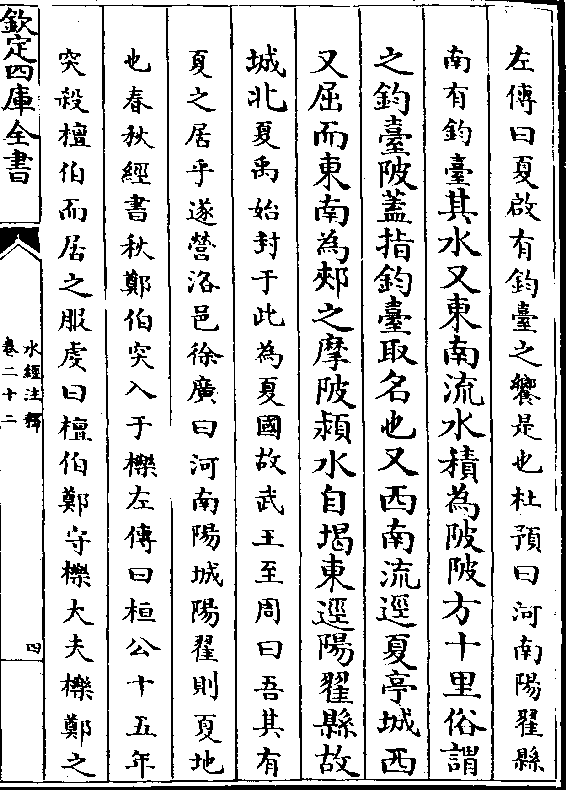 左傳曰夏啟有鈞臺之饗是也杜預曰河南陽翟縣
南有鈞臺其水又東南流水積為陂陂方十里俗謂
之鈞臺陂蓋指鈞臺取名也又西南流逕夏亭城西
又屈而東南為郟之摩陂潁水自堨東逕陽翟縣故
城北夏禹始封于此為夏國故武王至周曰吾其有
夏之居乎遂營洛邑徐廣曰河南陽城陽翟則夏地
也春秋經書秋鄭伯突入于櫟左傳曰桓公十五年
突殺檀伯而居之服虔曰檀伯鄭守櫟大夫櫟鄭之
欽定四庫全書
水經注釋
卷二十二
四